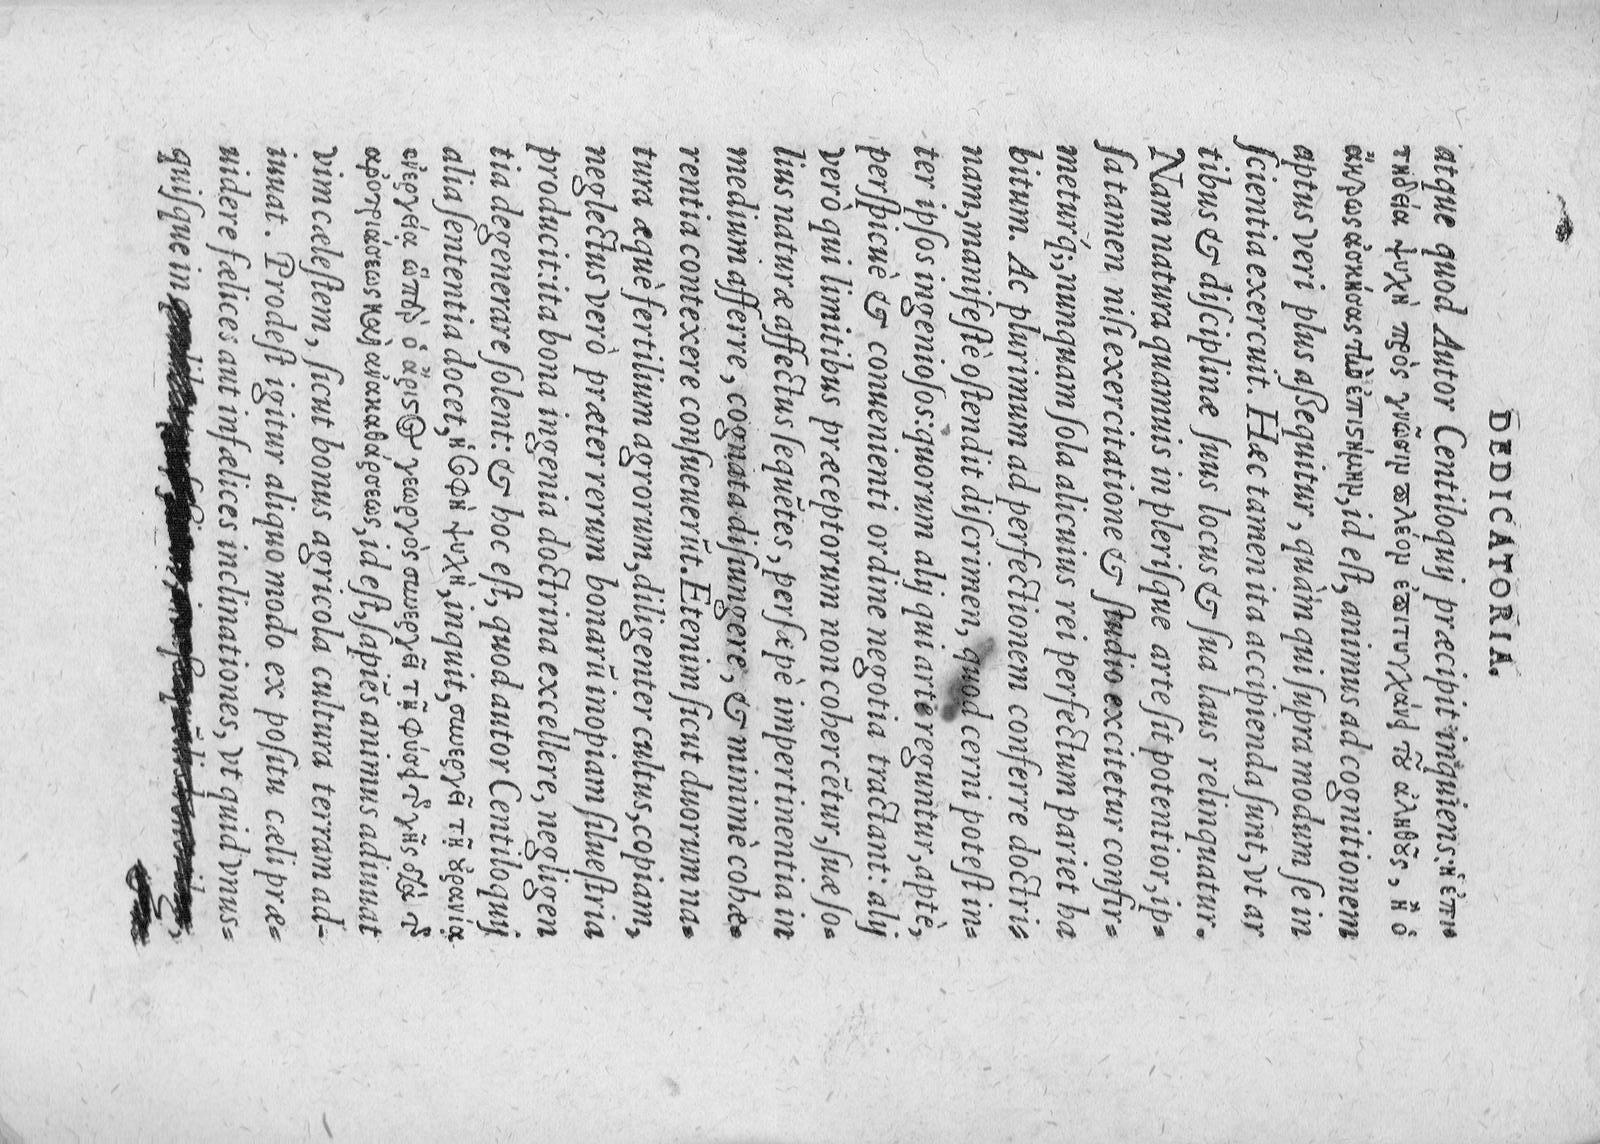 DEDICATORIA.
atque quod Autor Centiloquij præcipit inquiens, ἡ ἐπι-
τηδεία ψυχὴ πρὸς γνῶσιν πλέον ἐπιτυγχάνει τοῦ ἀληθοῦς, ἢ ὁ
ἄκρως ἀσκήσας τὴν ἐπιστήμην, id est, animus ad cognitionem
aptus veri plus assequitur, quàm qui supra modum se in
scientia exercuit. Hæc tamen ita accipienda sunt, vt ar
tibus & disciplinæ suus locus & sua laus relinquatur.
Nam natura quamuis in plerisque arte sit potentior, ip-
sa tamen nisi exercitatione & studio excitetur confir-
meturq́;, nunquam sola alicuius rei perfectum pariet ha
bitum. Ac plurimum ad perfectionem conferre doctri-
nam, manifestè ostendit discrimen, quod cerni potest in-
ter ipsos ingeniosos: quorum alij qui arte reguntur, aptè,
perspicuè & conuenienti ordine negotia tractant: alij
verò qui limitibus præceptorum non cohercẽtur, suæ so-
lius naturæ affectus sequẽtes, persæpè impertinentia in
medium afferre, cognata disiungere, & minimè cohæ-
rentia contexere consueuerũt. Etenim sicut duorum na-
tura æquè fertilium agrorum, diligenter cultus, copiam,
neglectus verò præter rerum bonarũ inopiam siluestria
producit: ita bona ingenia doctrina excellere, negligen
tia degenerare solent: & hoc est, quod autor Centiloquij
alia sententia docet, ἡ σοφὴ ψυχὴ, inquit, συνεργεῖ τῇ οὐρανίᾳ
ἐνεργείᾳ ὥσπερ ὁ ἄριστος γεωργὸς συνεργεῖ τῇ φύσει τῆς γῆς διὰ τῆς
ἀροτριάσεως καὶ ἀνακαθάρσεως, id est, sapiẽs animus adiuuat
vim cælestem, sicut bonus agricola cultura terram ad-
iuuat. Prodest igitur aliquo modo ex positu cæli præ-
uidere fælices aut infælices inclinationes, vt quid vnus-
quisque in